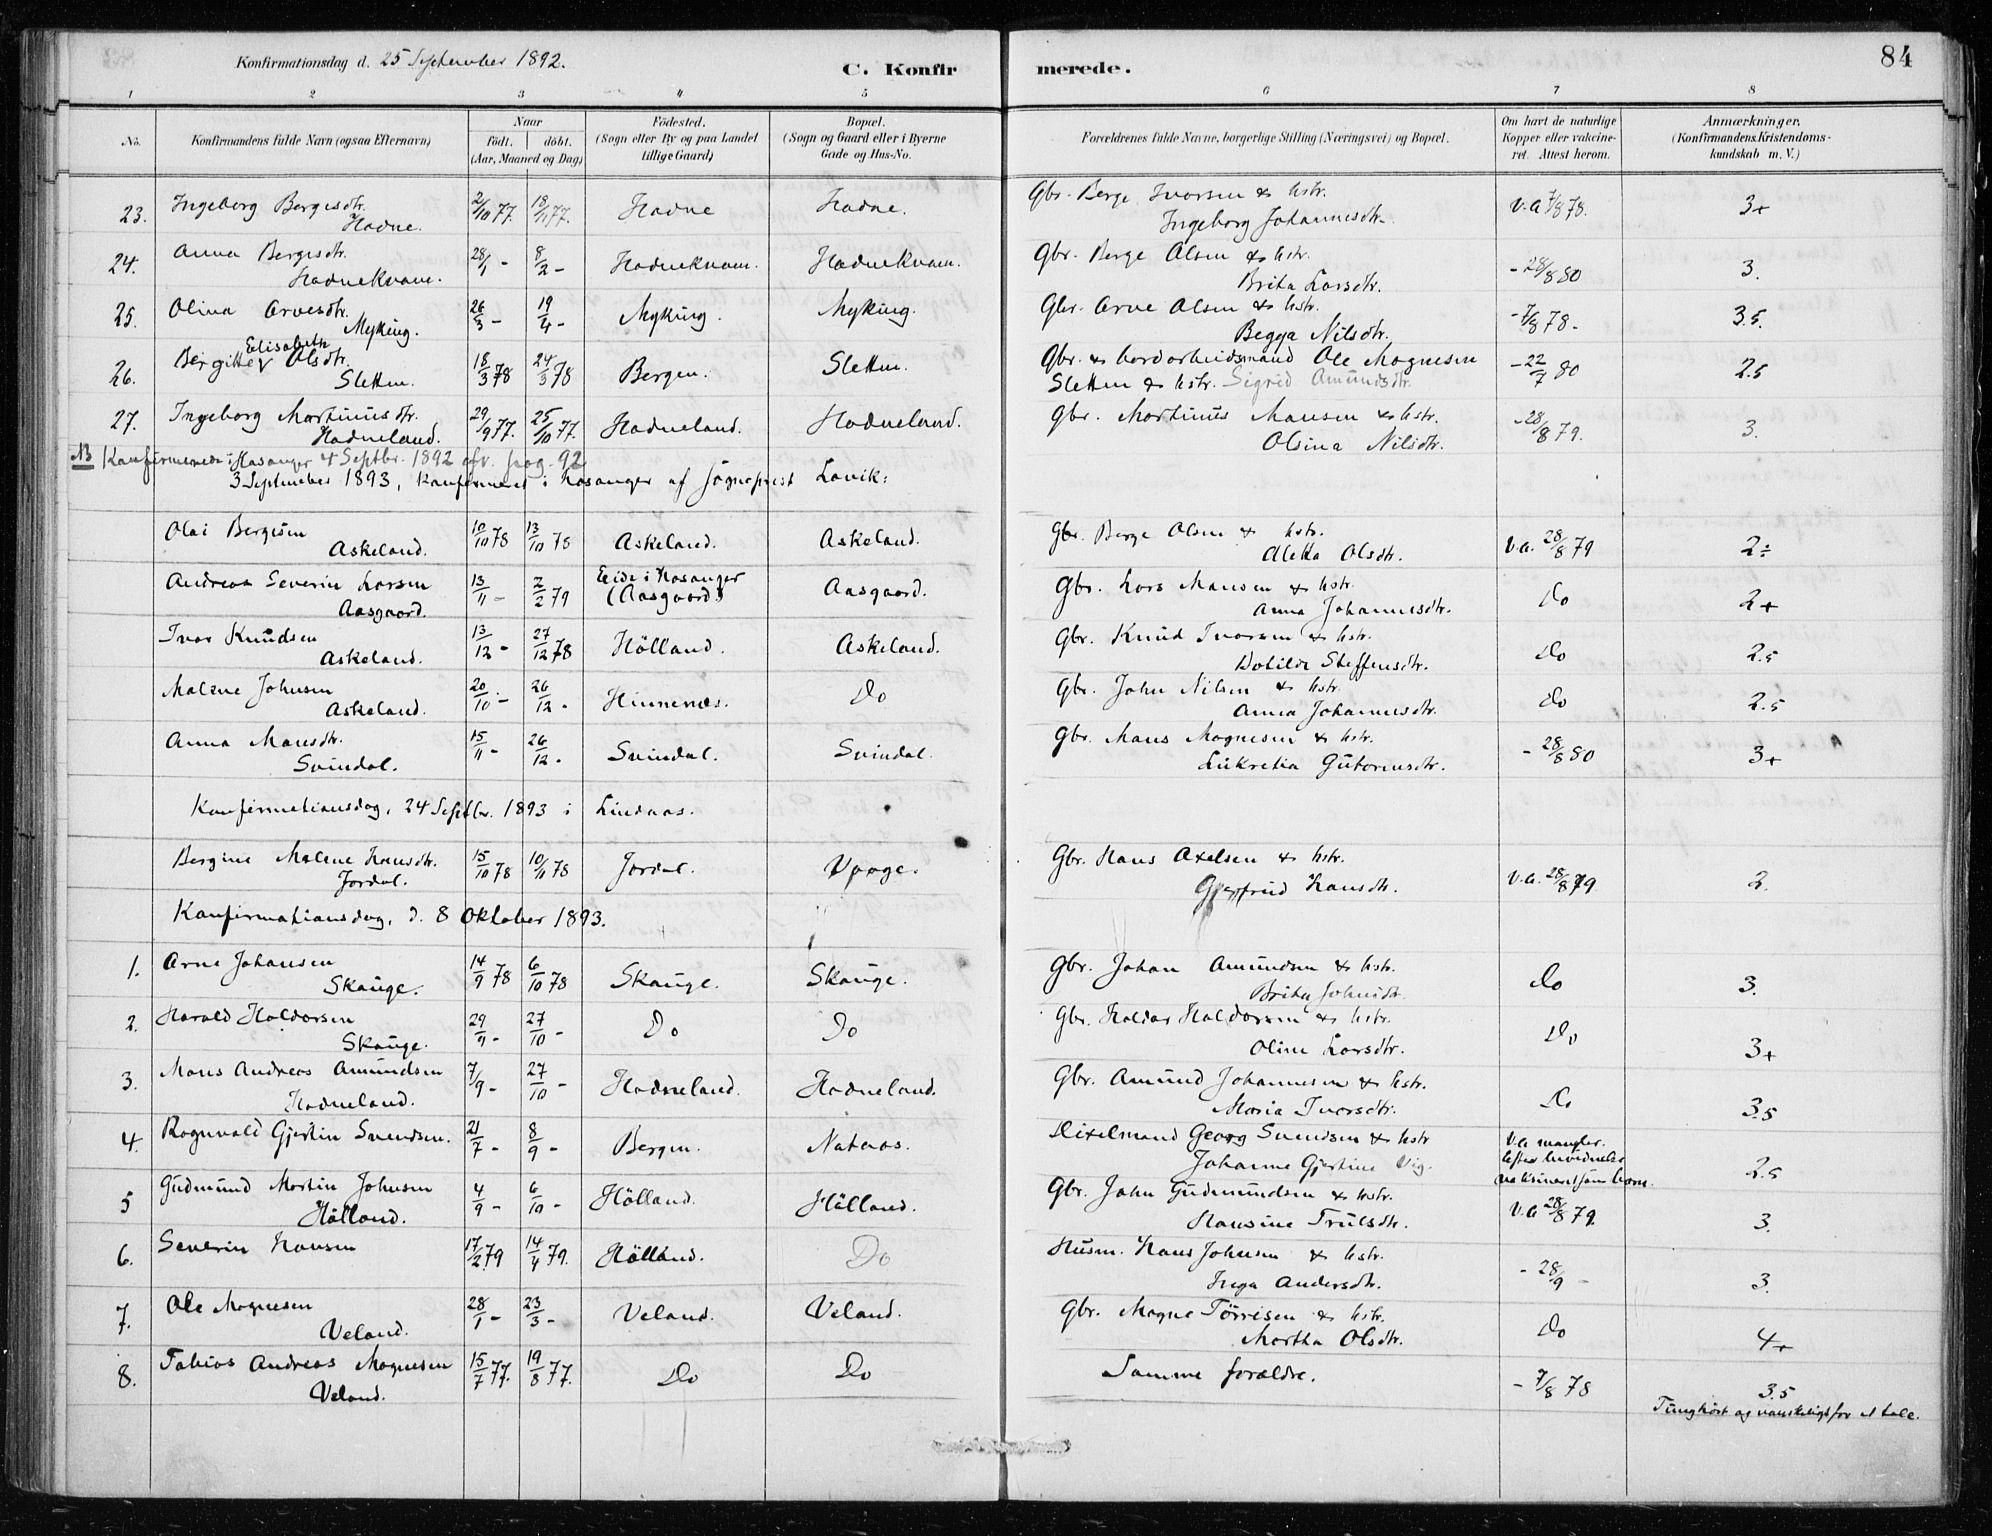 84
Konfirmationsdag d. 25 September 1892.
C. Konfirmerede.
1 2 3 4 5 6 7 8
No. Konfirmandens fulde Navn (ogsaa Efternavn) Naar født. døbt. (Aar, Maaned og Dag) Fødested. (Sogn eller By og paa Landet tillige Gaard) Bopæl. (Sogn og Gaard eller i Byerne Gade og Hus-No. Forældrenes fulde Navne, borgerlige Stilling (Næringsvei) og Bopæl. Om havt de naturlige Kopper eller vakcineret. Attest herom. Anmærkninger. (Konfirmandens Kristendomskundskab m. V.)
23. Ingeborg Bergesdtr. Hodne. 2/10 77. 18/11 77. Hodne Hodne. Gbr. Berge Ivarsen & hstr. Ingeborg Johannesdtr. v.a 7/8 78. 3+
24. Anna Bergesdtr. Hodnekvam. 28/1 - 8/2 - Hodnekvam. Hodnekvam. Gbr. Berge Olsen & hstr. Brita Larsdtr. - 28/8 80 3.
25. Olina Arvesdtr. Myking. 26/3 - 19/4 - Myking. Myking. Gbr. Arve Olsen & hstr. Begga Nilsdtr. - 7/8 78 - 3.5.
26. Bergitte Elisabeth Olsdtr. Sletten. 18/3 78 24/3 78 Bergen. Sletten. Gbr. & Jordarbeidsmand Ole Mognesen Sletten & hstr. Sigrid Amundsdtr. - 22/7 80 2.5
27. Ingeborg Martinusdtr. Hodneland. 29/9 77. 25/10 77. Hodneland. Hodneland. Gbr. Martinus Mansen & hstr. Olsina Nilsdtr. - 28/8 79. 3.
NB Konfirmerede i Hosanger 4 Septbr. 1892 cfr. pag. 92
3 September 1893, Konfirmeret i Hosanger af Sognepræst Lavik:
Olai Bergesen Askeland. 10/10 78 13/10 78 Askeland. Askeland. Gbr. Berge Olsen & hstr. Aletta Olsdtr. v.a. 28/8 79 2÷
Andreas Severin Larsen Aasgaard. 13/11 - 2/2 79 Eide i Hosanger (Aasgaard) Aasgaard. Gbr. Lars Mansen & hstr. Anna Johannesdtr. Do 2+
Ivar Knudsen Askeland. 13/12 - 27/12 78 Hölland. Askeland. Gbr. Knud Ivarsen & hstr. Botilde Steffensdtr. Do 2.5
Malene Johnsen Askeland. 20/10 - 26/12 - Hinnenæs. Do Gbr. John Nilsen & hstr. Anna Johannesdtr. Do 2.5
Anna Mansdtr. Svindal. 15/11 - 26/12 - Svindal. Svindal. Gbr. Mans Mognesen & hstr. Lukretia Gutormsdtr. - 28/8 80 3+
Konfirmationsdag, 24 Septbr. 1893 i Lindaas.
Bergine Malene Hansdtr. Jordal. 15/10 78 10/11 78 Jordal. Gbr. Hans Axelsen & hstr. Gjertrud Hansdtr. v.a. 28/8 79 2.
Konfirmationsdag, d. 8 Oktober 1893.
1. Arne Johansen Skauge. 14/9 78 6/10 78 Skauge. Skauge. Gbr. Johan Amundsen & hstr. Brita Johnsdtr. Do 3.
2. Harald Haldorsen Skauge. 29/9 - 27/10 - Do Do Gbr. Haldor Haldorsen & hstr. Oline Larsdtr. Do 3+
3. Mons Andreas Amundsen Hodneland. 7/9 - 27/10 - Hodneland. Hodneland. Gbr. Amund Johannesen & hstr. Maria Ivarsdtr. Do 3.5
4. Rognvald Gjertin Svendsen. 21/7 - 8/9 - Bergen. Nataas. Dixelmand Georg Svendsen & hstr Johanne Gjertine Vig. v.a mangler. 2.5
5 Gudmund Martin Johnsen Hölland. 4/9 - 6/10 - Hölland. Hölland. Gbr. John Gudmundsen & hstr. Hansine Trulsdtr. v.a 28/8 79. 3.
6. Severin Hansen 17/2 79 14/4 79. Hölland. Do Husm. Hans Johnsen & hstr. Inga Andersdtr. - 28/9 - 3.
7. Ole Mognesen Veland. 28/1 - 23/3 - Veland. Veland. Gbr. Mogne Törresen & hstr. Martha Olsdtr. Do 4+
8. Tobias Andreas Mognesen Veland. 15/7 77. 19/8 77. Do Do Samme forældre. - 7/8 78 3.5
Tunghört og vanskeligt for at tale.